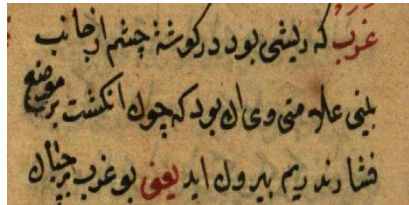 غرب که ریشی بود در کوشهٔ چشم از جانب
بینی علامتی وی ان بود که چون انکشت بر موضع
فشارند ریم بیرون اید یعنی بو غرب بر جبان